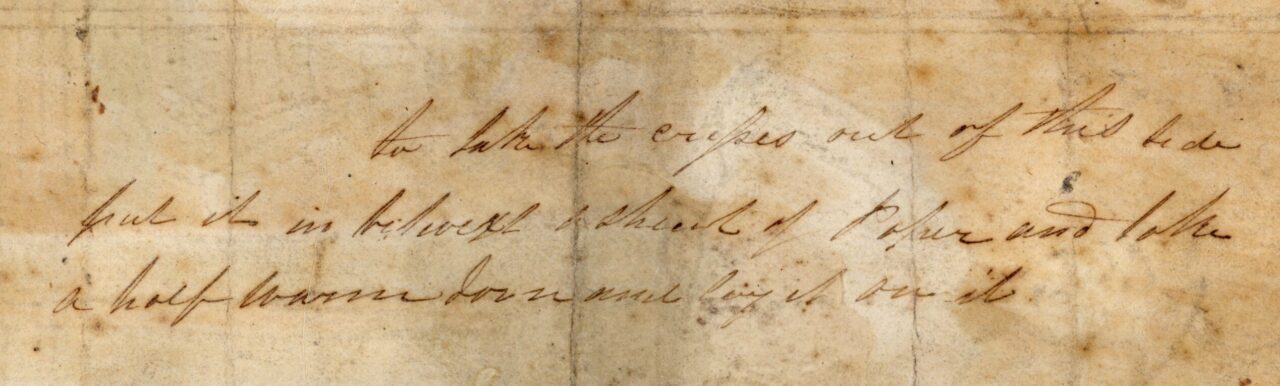 to take the creases out of this side
put it in betwext a sheet of Paper and take
a half warm Iorn and lay it on it